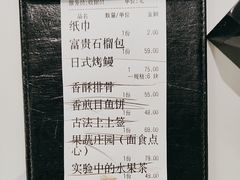 品名 数量/单位 金额
纸巾
1份 2.00
富贵石榴包
1份 59.00
日式烤鳗
1 75.00
一规格:6块
香酥排骨
1份 55.00
香煎目鱼饼
1份 48.00
古法上上签
1份 69.00
果蔬庄园（面食点
心）
1份 39.00
实验中的水果茶
1份 48.00